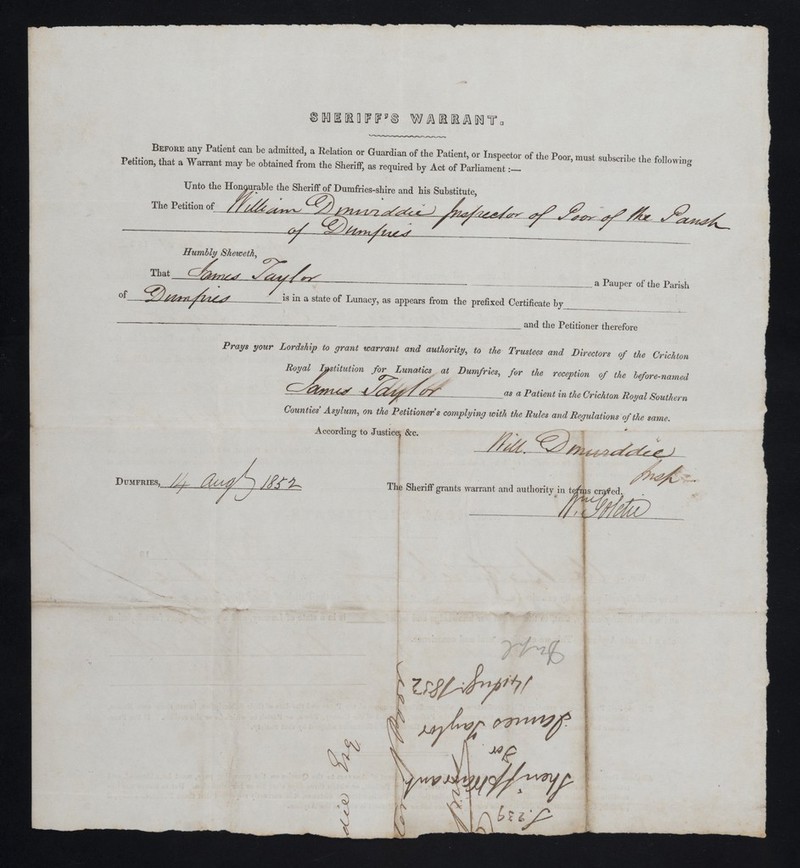 SHERIFF'S WARRANT.
BEFORE any Patient can be admitted, a Relation or Guardian of the Patient, or Inspector of the Poor, must subscribe the following
Petition, that a Warrant may be obtained from the Sheriff, as required by Act of Parliament :—
Unto the Honourable the Sheriff of Dumfries-shire and his Substitute,
The Petition of William Dinwiddie Inspector of Poor of the Parish
of Dumfries
Humbly Sheweth,
That James Taylor a Pauper of the Parish
of Dumfries is in a state of Lunacy, as appears from the prefixed Certificate by
and the Petitioner therefore
Prays your Lordship to grant warrant and authority, to the Trustees and Directors of the Crichton
Royal Institution for Lunatics at Dumfries, for the reception of the before-named
James Taylor as a Patient in the Crichton Royal Southern
Counties' Asylum, on the Petitioner's complying with the Rules and Regulations of the same.
According to Justice, &c.
Will. Dinwiddie
Insp
DUMFRIES, 14 Augt 1852
The Sheriff grants warrant and authority in terms craved,
Wm Goldie
S. 239
Sheriff's Warrant
for
James Taylor
14 Augt. 1852
die Esq